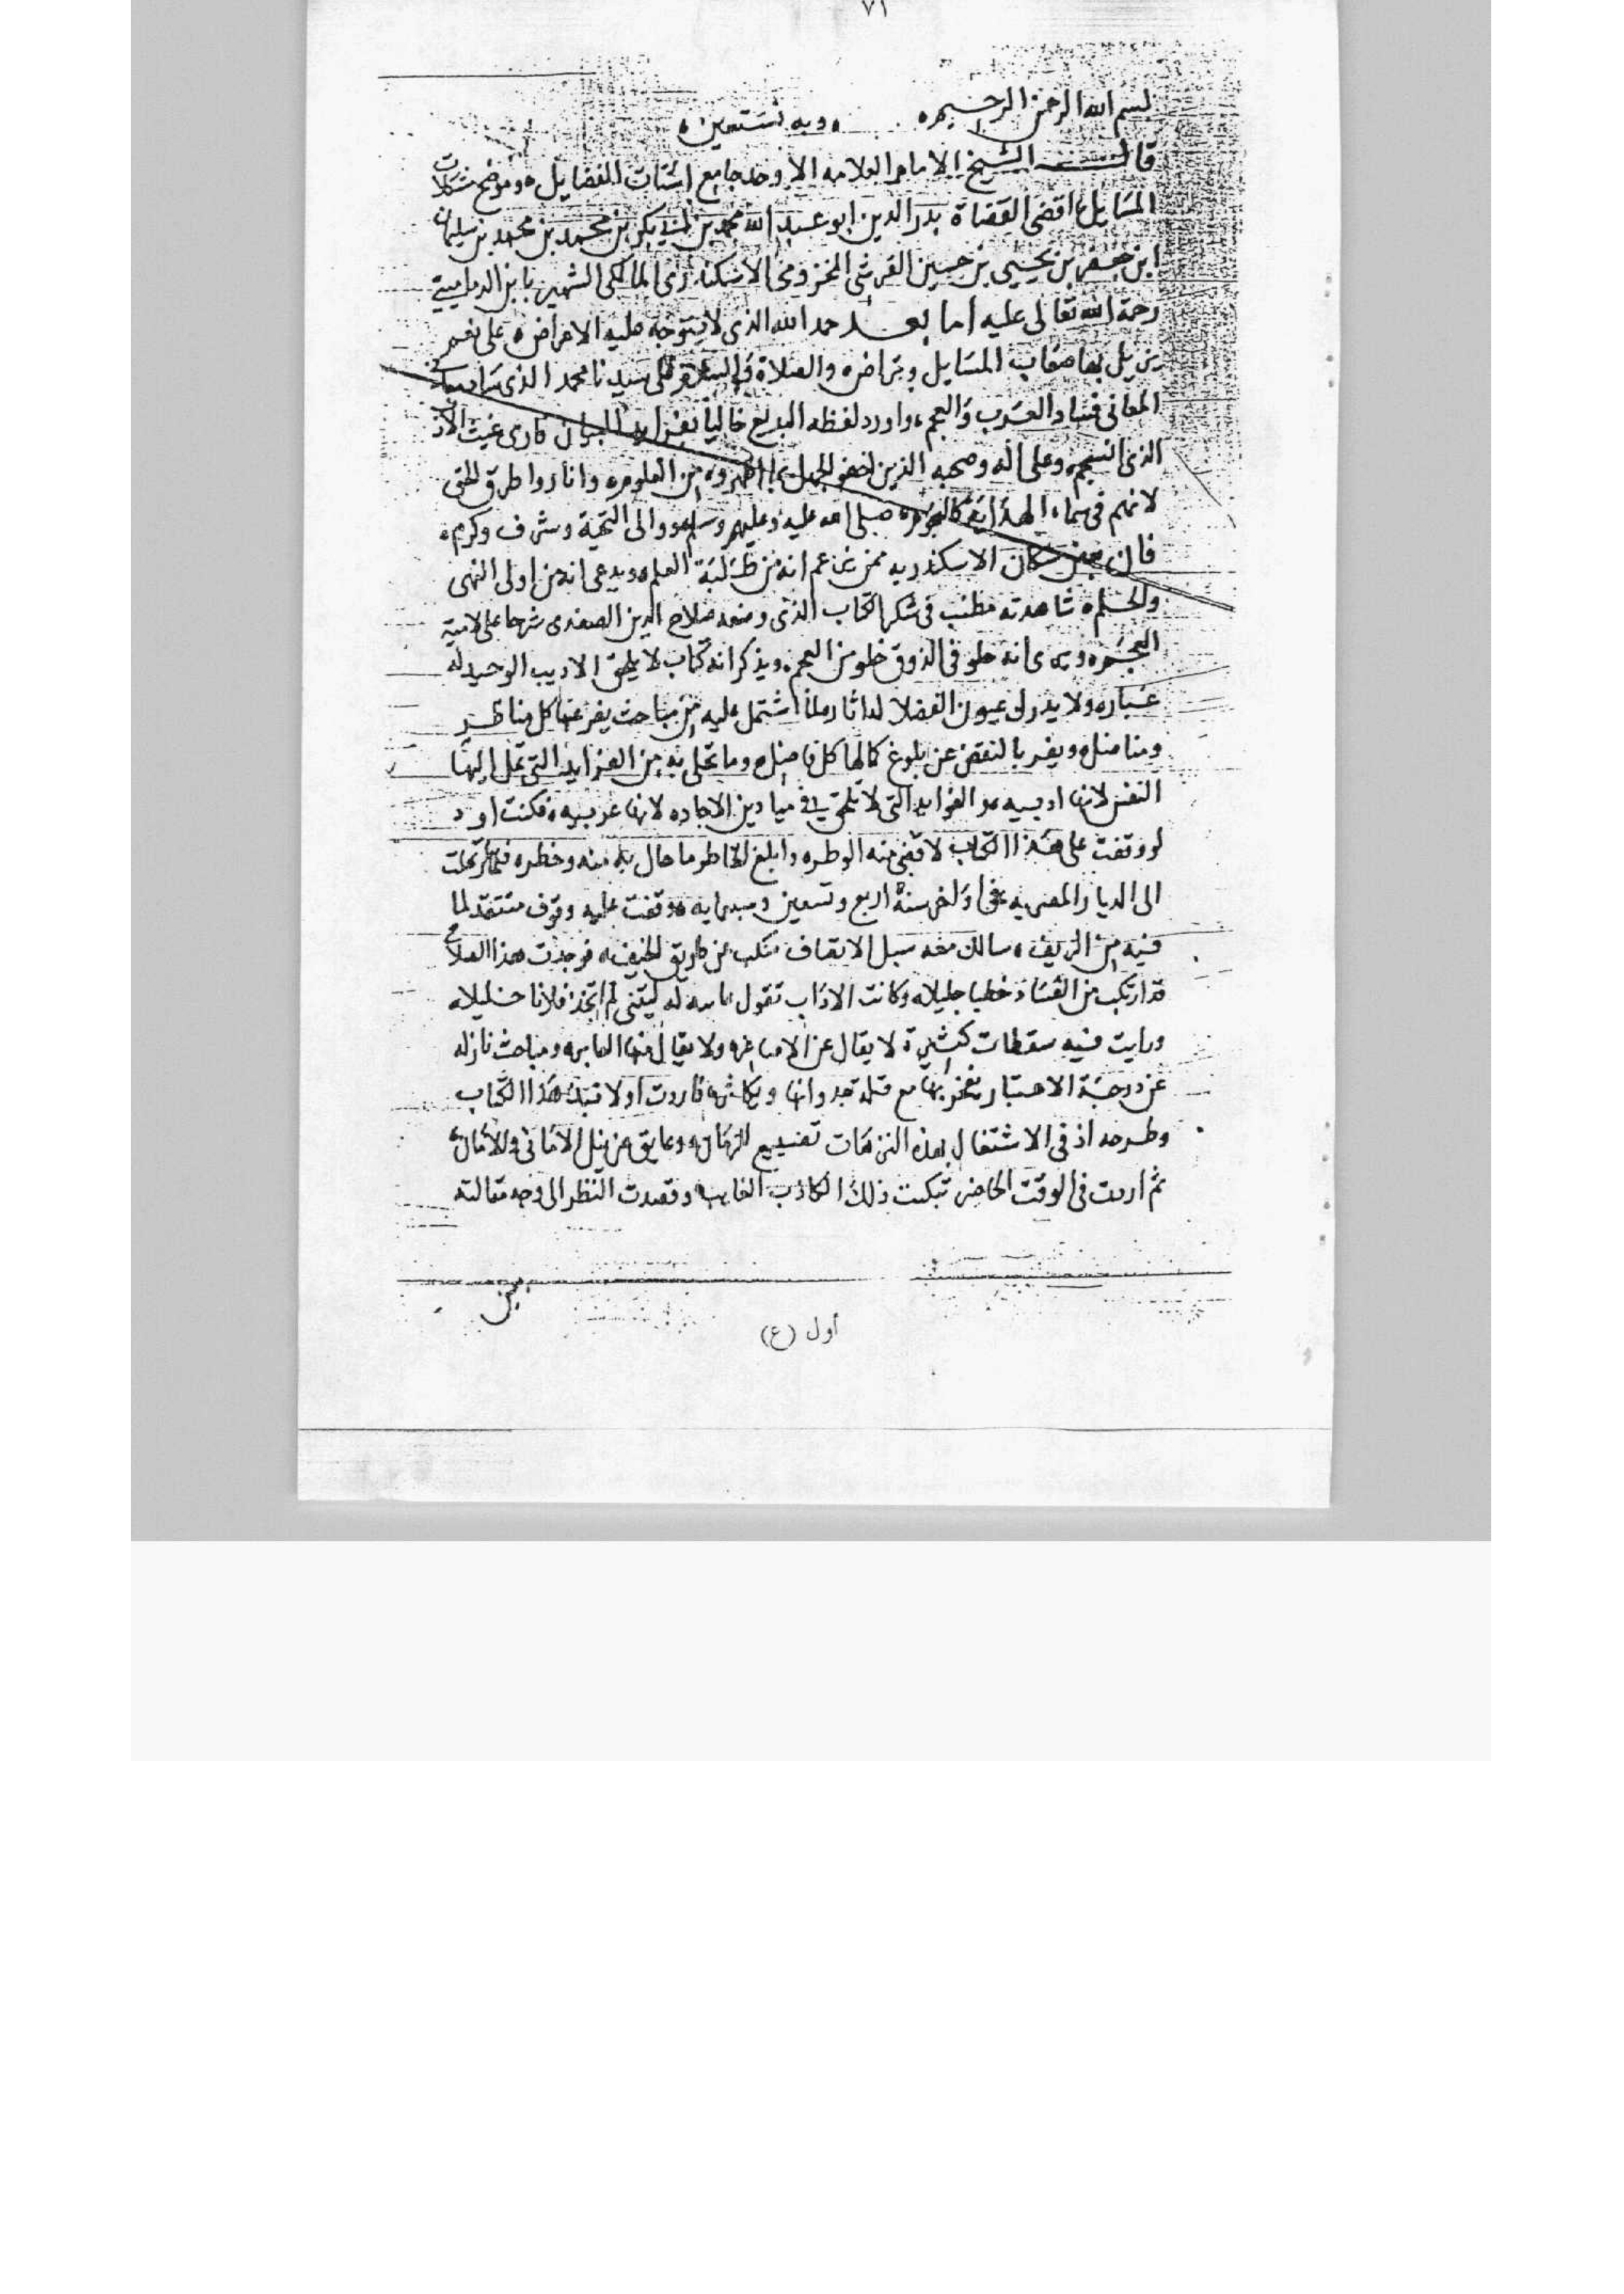 ٧١
بسم الله الرحمن الرحيم ٥ وبه نستعين ٥
قال الشيخ الامام العلامه الاوحد جامع اشتات الفضايل ٥ وموضح مشكلات
المسايل اقضى القضاة بدر الدين ابو عبد الله محمد بن ابي بكر بن محمد بن محمد بن سليمان
ابن جعفر بن يحيى بن حسين القرشى المخزومى الاسكندرى المالكى الشهير بابن الدمامينى
رحمة الله تعالى عليه اما بعد حمد الله الذى لا يتوجه عليه الاعراض ٥ على نعم
يزيل بها صعاب المسايل وتراض ٥ والصلاة والسلام على سيدنا محمد الذى
المعانى فساد العرب والعجم ٥ واورد لفظه البديع حاليا بفرايد
الذى انسجم ٥ وعلى اله وصحبه الذين اخفوا الجهل بما اظهروه من العلوم ٥ واناروا طرق الحق
لانهم فى سماء الهداية كالنجوم ٥ صلى الله عليه وعليهم وسلم ووالى التحية وشرف وكرم ٥
فان بعض سكان الاسكندريه ممن زعم انه من طلبة العلم ٥ ويدعى انه من اولى النهى
والحلم ٥ شاهدته مطنب فى شكر الكتاب الذى وضعه صلاح الدين الصفدى شرحا على لامية
العجم ٥ ويرى انه حلو فى الذوق خلو من العجم ٥ ويذكر انه كتاب لا يلحق الاديب الوحيد له
غباره ولا يدرك عيون الفضلا له اثاره لما اشتمل عليه من مباحث يفر عنها كل مناظر
ومناضل ٥ ويقر بالنقص عن بلوغ كمالها كل فاضل ٥ وما تحلى به من الفرايد التى تميل اليها
النفس لانها ادبيه ٥ والفوايد التى لا تلحق فى ميادين الاجاده لانها عربيه ٥ فكنت اود
لو وقفت على هذا الكتاب لاقضى منه الوطر ٥ وابلغ الخاطر ما حال بينه وخطره فلما رحلت
الى الديار المصريه فى اواخر سنة اربع وتسعين وسبعمايه ٥ وقفت عليه وقوف منتقد لما
فيه من الزيف ٥ سالك معه سبل الانصاف متنكب عن طريق الحيف ٥ فوجدت هذا الصلاح
قد ارتكب من الفساد خطبا جليلا ٥ وكانت الاداب تقول ليتنى لم اتخذ فلانا خليلا ٥
ورايت فيه سقطات كثيرة لا يقال عن الاصاغر ٥ ولا يقال منها العاثر ٥ ومباحث نازله
عن درجة الاعتبار يفخر بها مع قلة جدواها ويكاثر ٥ فاردت اولا نبذ هذا الكتاب
وطرحه اذ فى الاشتغال بهذه الترهات تضييع للزمان ٥ وعايق عن نيل الامانى والامال ٥
ثم اردت فى الوقت الحاضر تبكيت ذلك الكاذب الغايب ٥ وقصدت النظر الى وجه مقالته
أول (ع)